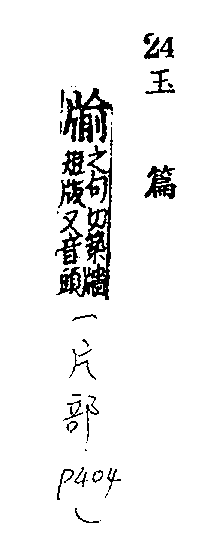 24玉篇
牏
之句切築牆
短版又音頭
(片部
p404)